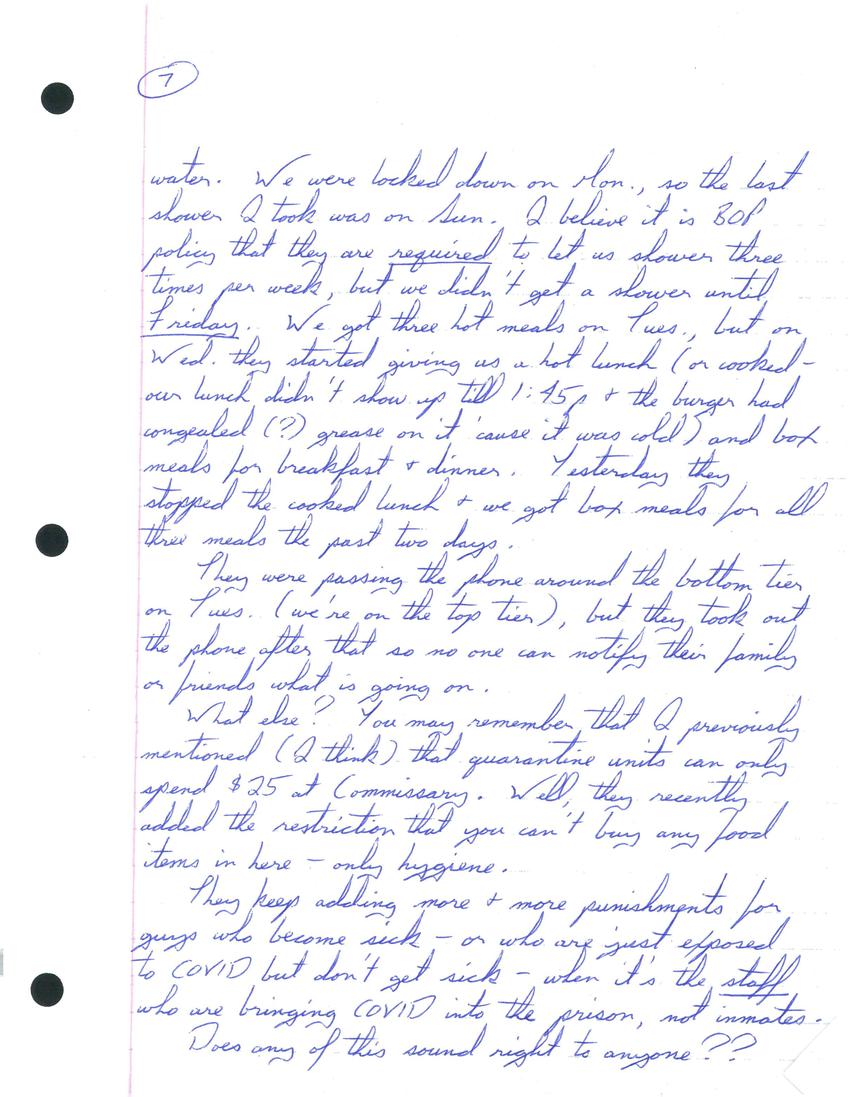 7
water. We were locked down on Mon., so the last
shower I took was on Sun. I believe it is BOP
policy that they are required to let us shower three
times per week, but we didn't get a shower until
Friday. We got three hot meals on Tues., but on
Wed. they started giving us a hot lunch (or cooked -
our lunch didn't show up till 1:45p + the burger had
congealed (?) grease on it 'cause it was cold) and box
meals for breakfast + dinner. Yesterday they
stopped the cooked lunch + we got box meals for all
three meals the past two days.
They were passing the phone around the bottom tier
on Tues. (we're on the top tier), but they took out
the phone after that so no one can notify their family
or friends what is going on.
What else? You may remember that I previously
mentioned (I think) that quarantine units can only
spend $25 at Commissary. Well, they recently
added the restriction that you can't buy any food
items in here - only hygiene.
They keep adding more + more punishments for
guys who become sick - or who are just exposed
to COVID but don't get sick - when it's the staff
who are bringing COVID into the prison, not inmates.
Does any of this sound right to anyone??